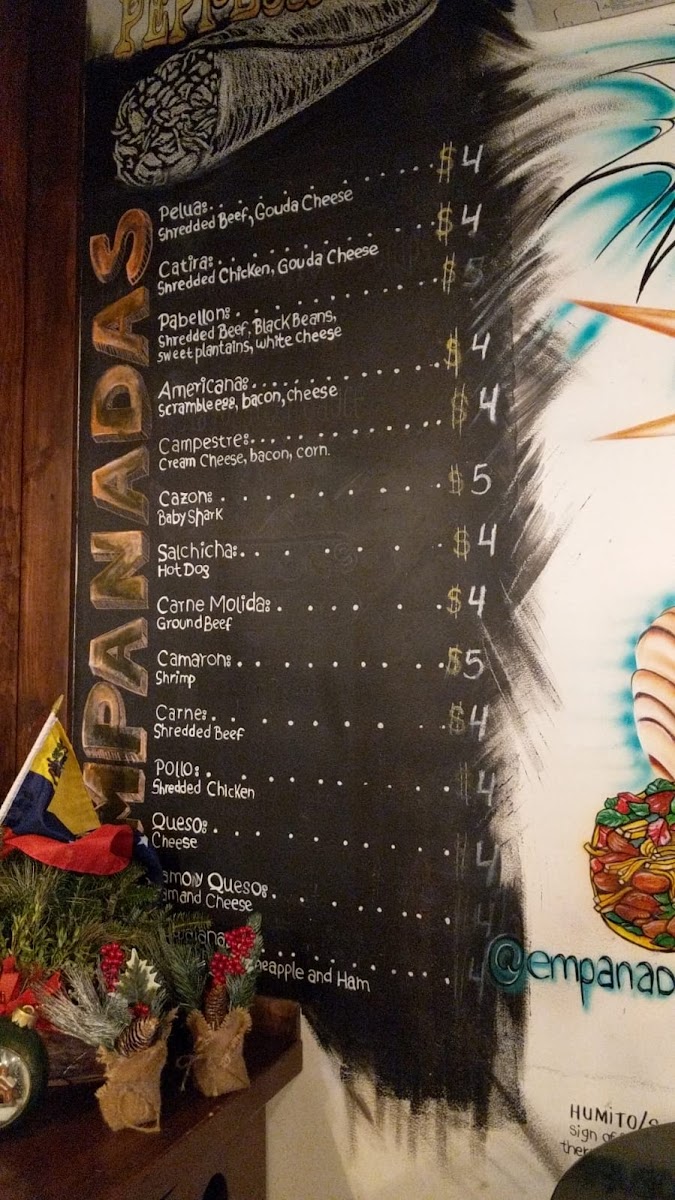 Pelua: $4
Shredded Beef, Gouda Cheese
Catira: $4
Shredded Chicken, Gouda Cheese
Pabellon: $5
Shredded Beef, Black Beans,
sweet plantains, white cheese
Americana: $4
Scramble egg, bacon, cheese
Campestre: $4
Cream Cheese, bacon, corn.
Cazon: $5
Baby Shark
Salchicha: $4
Hot Dog
Carne Molida: $4
Ground Beef
Camaron: $5
Shrimp
Carne: $4
Shredded Beef
Pollo: $4
Shredded Chicken
Queso: 4
Cheese
amon y Queso: 4
am and Cheese
4
neapple and Ham
MPANADAS
@empanad
HUMITO/S
sign of